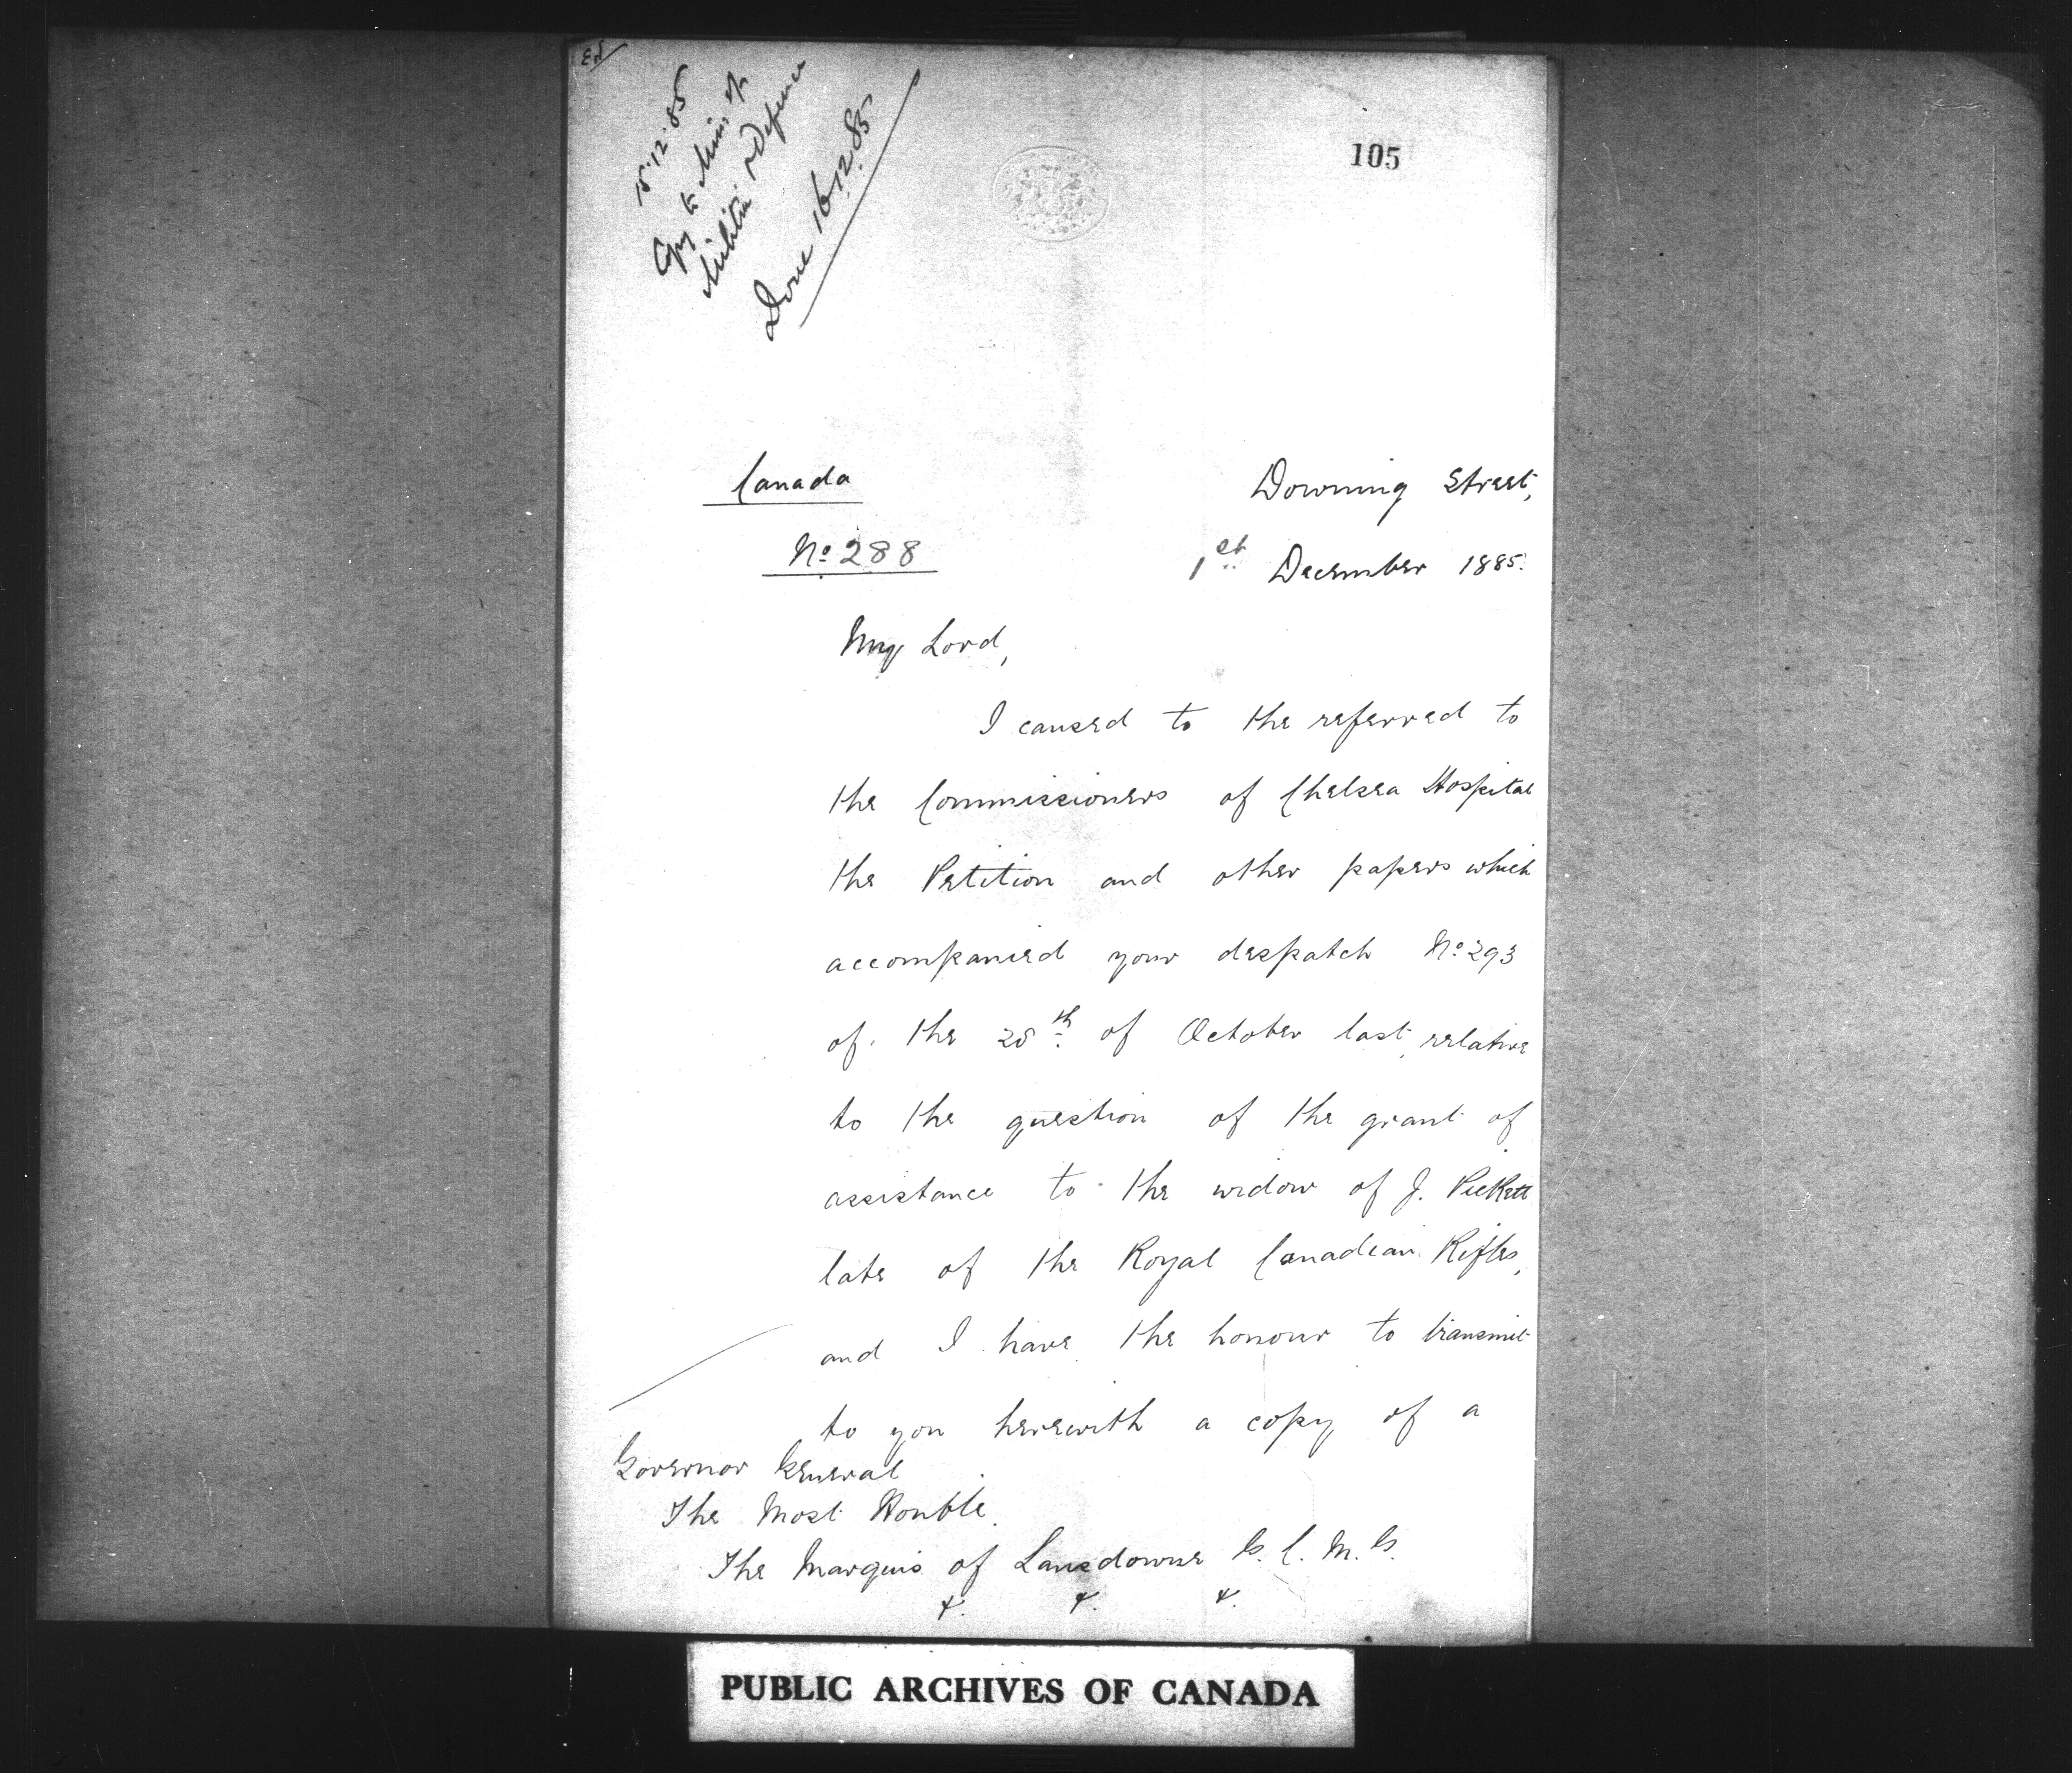 15.12.85
Copy to Minis of
Militia & Defence
Done 16.12.85
105
Canada
No. 288
Downing Street,
1st December 1885.
My Lord,
I caused to the referred to
the Commissioners of Chelsea Hospital
the Petition and other papers which
accompanied your despatch No. 293
of the 28th of October last, relative
to the question of the grant of
assistance to the widow of J. Pickett
late of the Royal Canadian Rifles,
and I have the honour to transmit
to you herewith a copy of a
Governor General
The Most Honble.
The Marquis of Lansdowne G.C.M.G.
&. &. &.
PUBLIC ARCHIVES OF CANADA